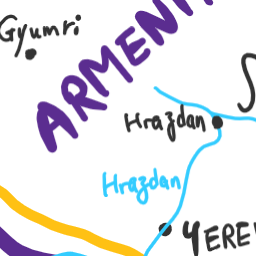 Gyumri
ARMENI
Hrazdan
Hrazdan
YERE